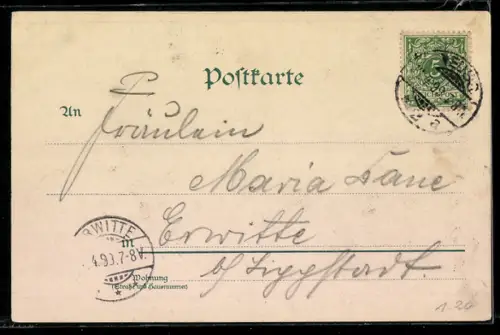 Postkarte
P
An
Fräulein
Maria Lane
Erwitte
b/ Lippstadt.
RWITTE
4.99.7-8V.
Wohnung
(Straße und Hausnummer)
5
1.20